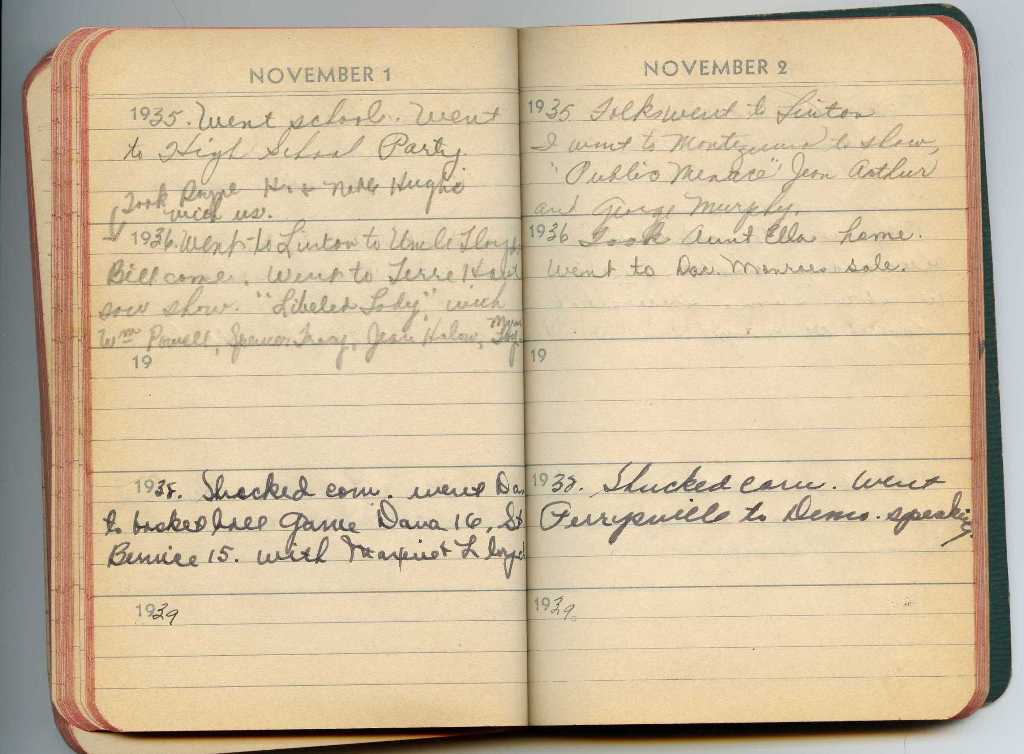 NOVEMBER 1
1935. Went school. Went
to High School Party.
Took Payne H. & Nelle Hughe
with us.
1936. Went to Linton to Uncle Floyd
Bill come. Went to Terre Haut
saw show. "Libeled Lady" with
Wm Powell, Spencer Tracy, Jean Halow, Myrna Loy.
19
1938. Shocked corn. went Da
to basketball game Dana 16, St
Bernice 15. with Margaret Lloyd
1939
NOVEMBER 2
1935 Folks went to Linton
I went to Montezuma to show,
"Public Menace" Jean Arthur
and George Murphy.
1936 Took Aunt Ella home.
Went to Doc. Monroes sale.
19
1938. Shucked corn. Went
Perrysville to Demo. speaking
1939.